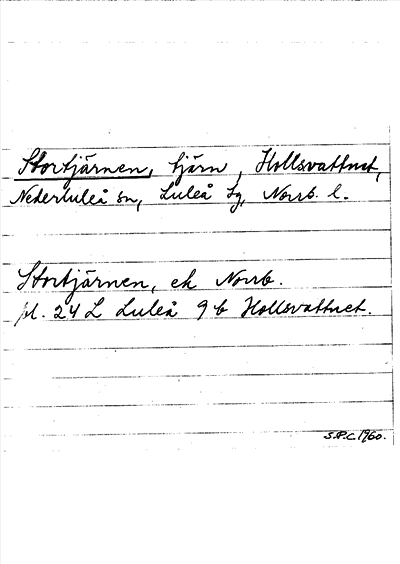 Stortjärnen, tjärn, Hollsvattnet,
Nederluleå sn, Luleå tg, Norrb. l.
Stortjärnen, ek Norrb.
pl. 24 L Luleå 9 b Hollsvattnet.
S.P.C 1960.